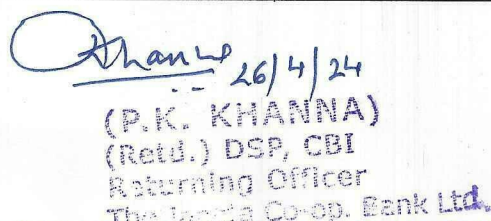 Khanna 26/4/24
(P.K. KHANNA)
(Retd.) DSP, CBI
Returning Officer
The Janata Co-op. Bank Ltd.